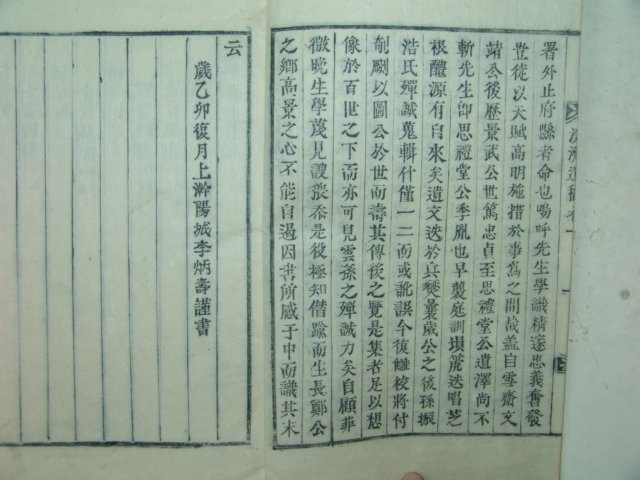 署外止府縣者命也嗚呼先生學識精邃忠義奮發
豈徒以天賦高明施措於事爲之間哉盖自雪齋文
靖公後歷景武公世篤忠貞至思禮堂公遺澤尚不
斬先生卽思禮堂公季胤也早襲庭訓塤箎迭唱芝
根醴源有自來矣遺文迭於兵燹曩歲公之後孫振
浩氏殫誠蒐輯什僅一二而或訛誤今復讎校將付
剞劂以圖公於世而壽其傳後之覽是集者足以想
像於百世之下而亦可見雲孫之殫誠力矣自顧菲
微晩生學蔑見謏猥忝是役極知僭踰而生長鄭公
之鄉高景之心不能自遏因書所感于中而識其末
云
歲乙卯復月上澣陽城李炳壽謹書